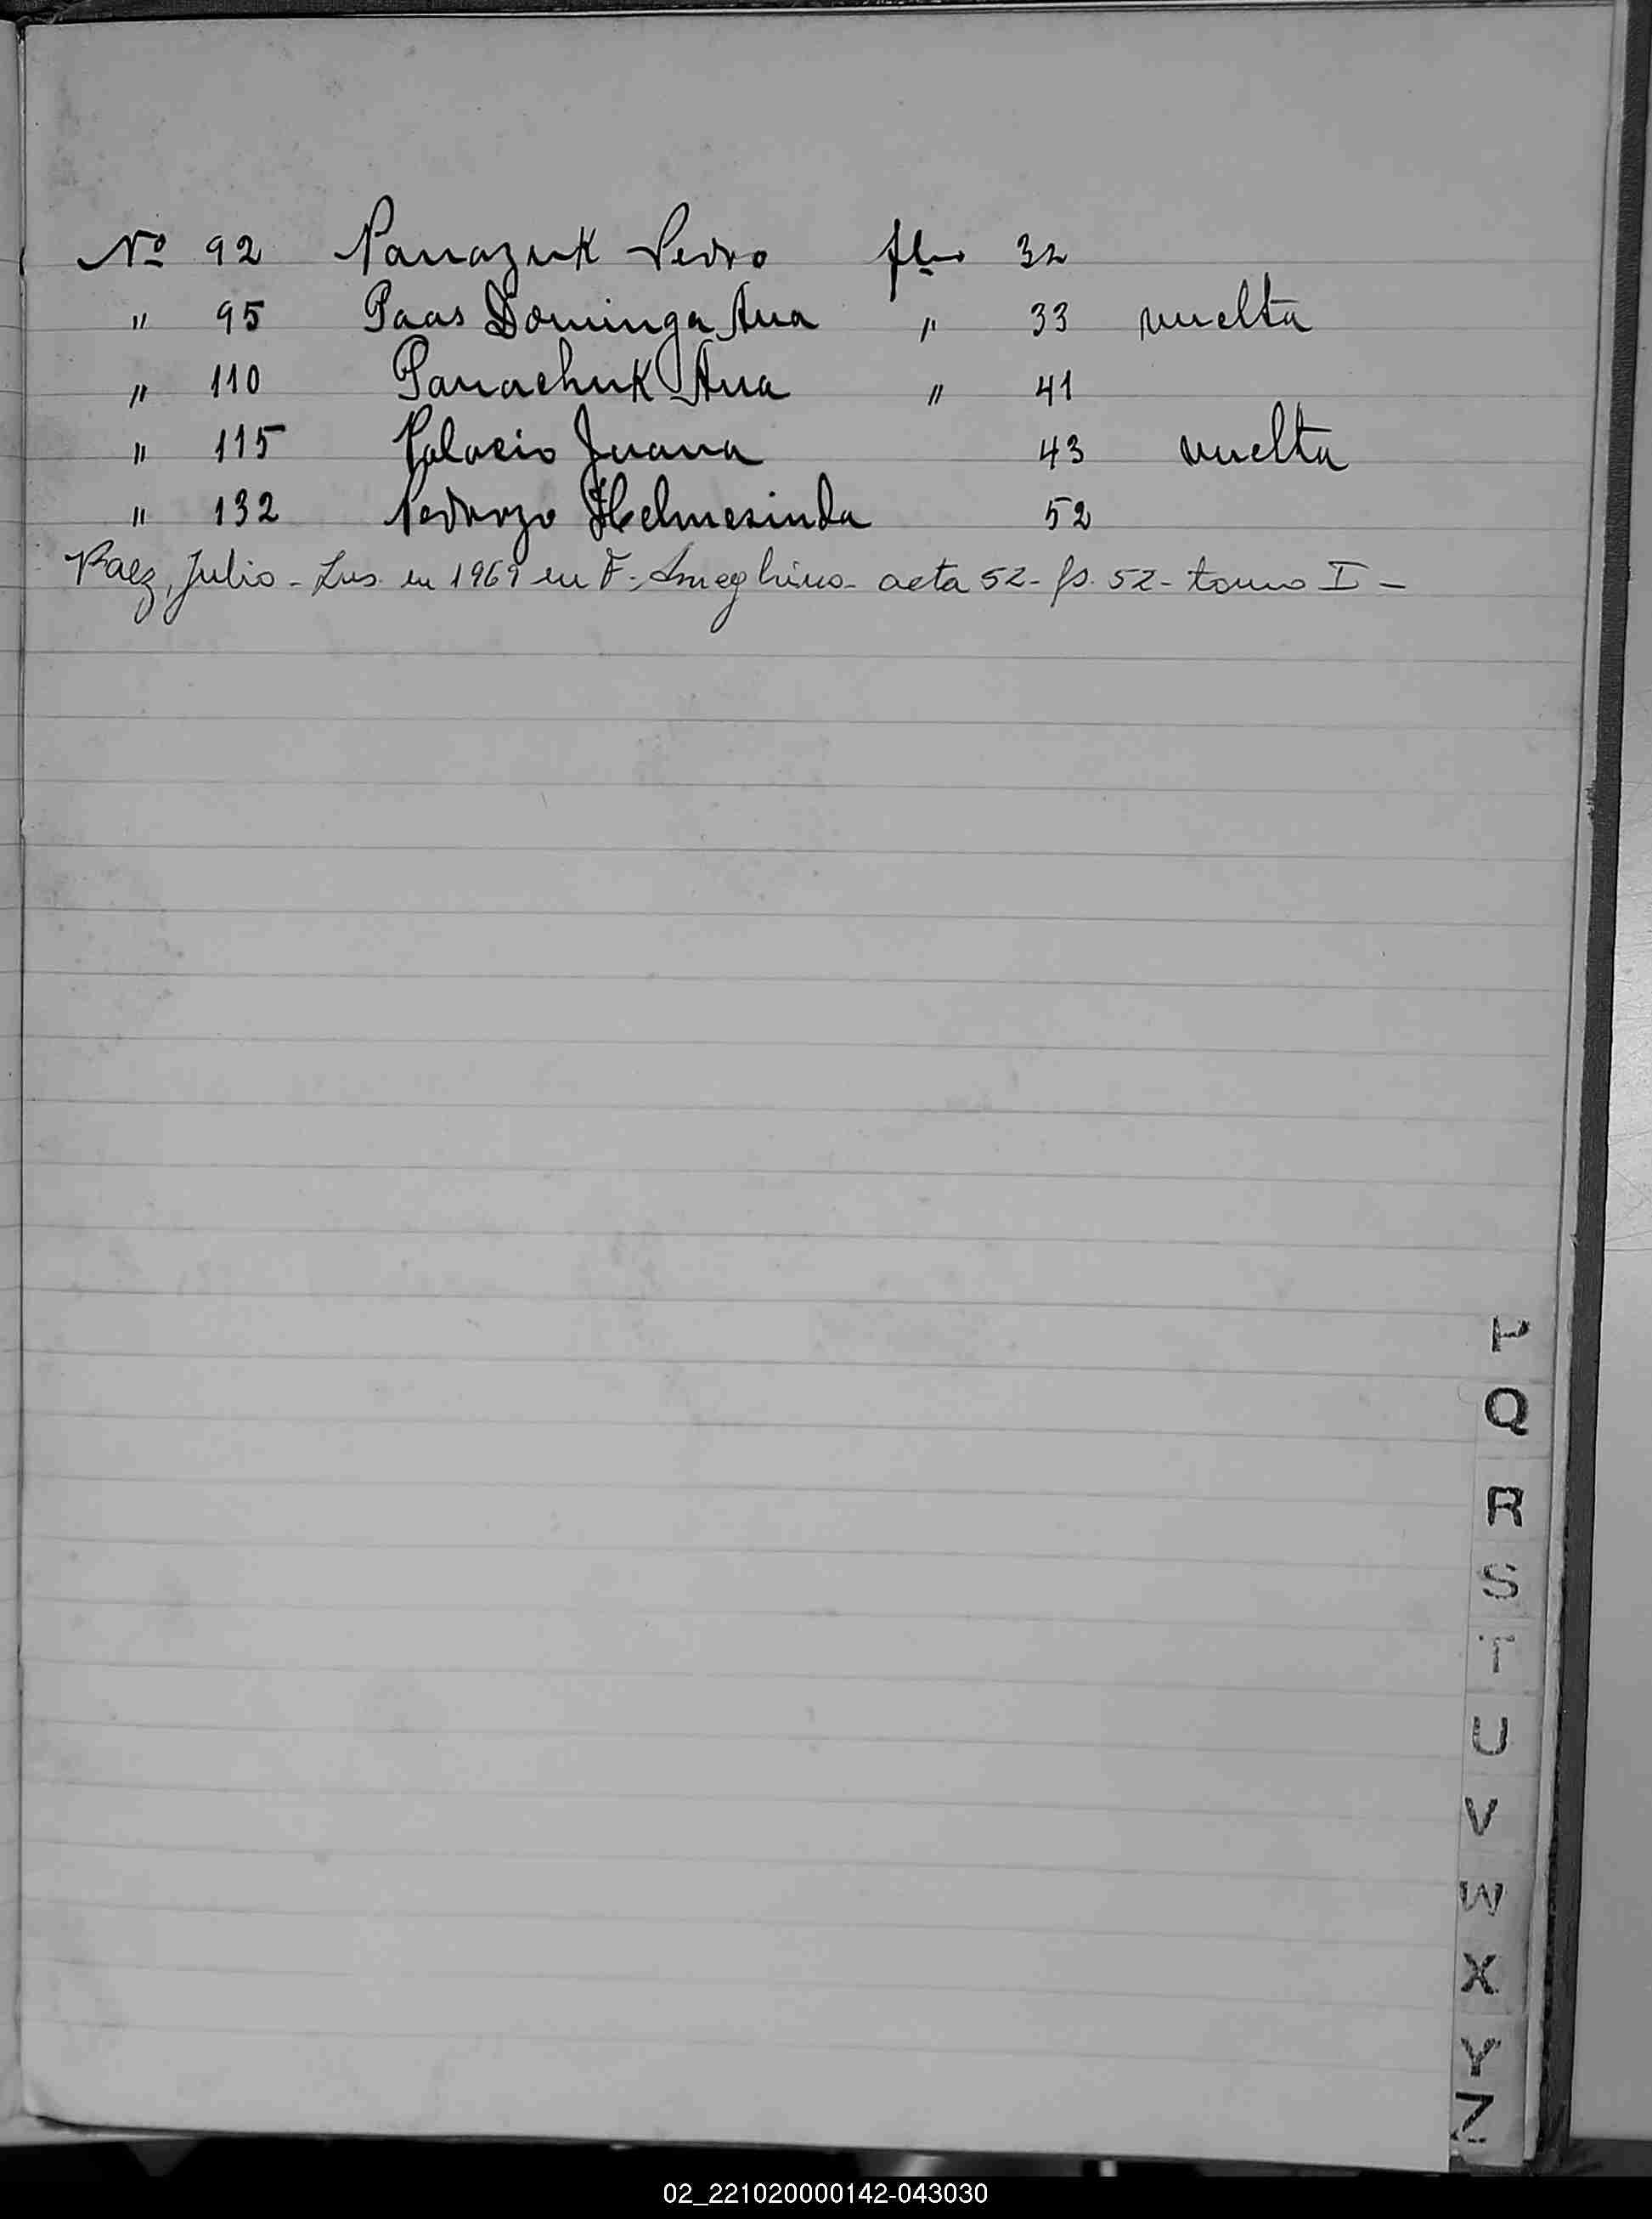 Nº 92 Panazuk Pedro flio 32
" 95 Paas Dominga Ana " 33 vuelta
" 110 Panachuk Ana " 41
" 115 Palacio Juana 43 vuelta
" 132 Pedrozo Helmesinda 52
Paez, Julio - Ins. en 1969 en F. Ameghino - acta 52 - fs. 52 - tomo I -
P
Q
R
S
T
U
V
W
X
Y
Z
02_221020000142-043030